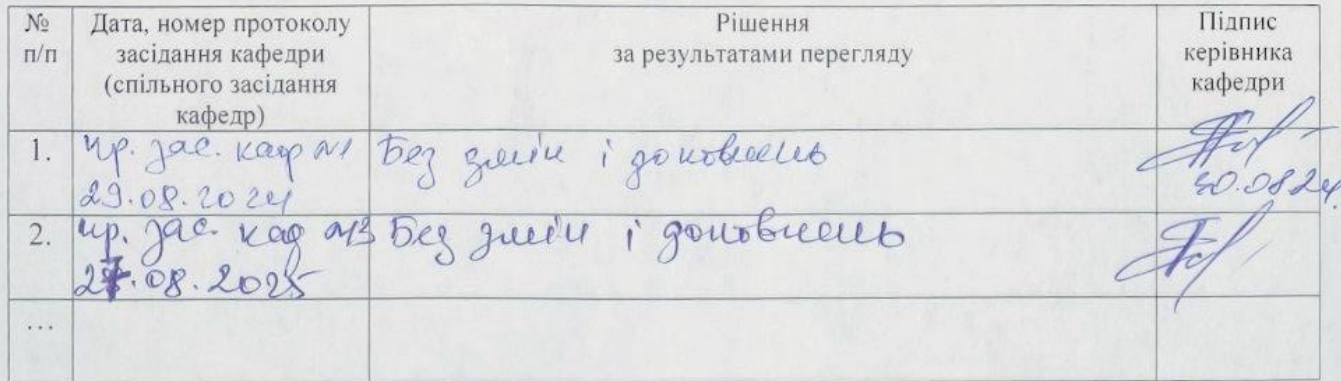 № п/п
Дата, номер протоколу засідання кафедри (спільного засідання кафедр)
Рішення за результатами перегляду
Підпис керівника кафедри
1.
пр. зас. каф №1
29.08.2024
Без змін і доповнень
30.08.24
2.
пр. зас. каф №3
27.08.2025
Без змін і доповнень
...